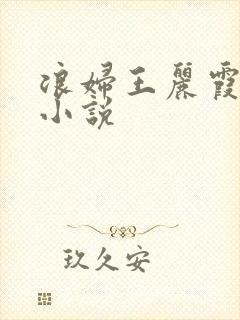 浪婦王麗霞
小說
玖久安